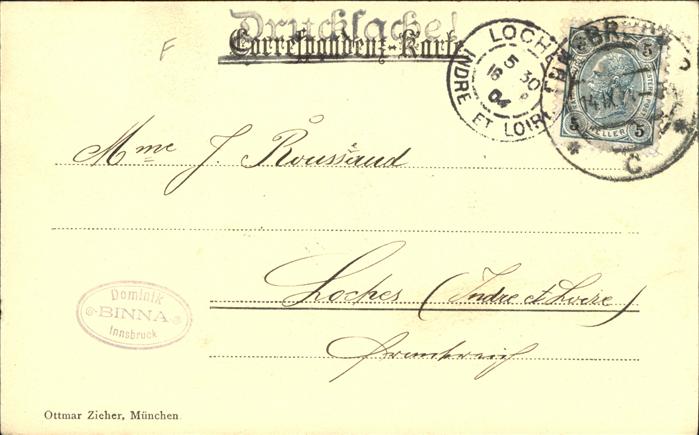 Drucksache!
Correspondenz-Karte
F
LOCHES
5 30
16 9
04
INDRE ET LOIRE
INNSBRUCK 2
14 IX 04
C
5 5
5 5
HELLER
Mme J. Roussaud
Loches (Indre et Loire)
Frankreich
Dominik
BINNA
Innsbruck
Ottmar Zieher, München